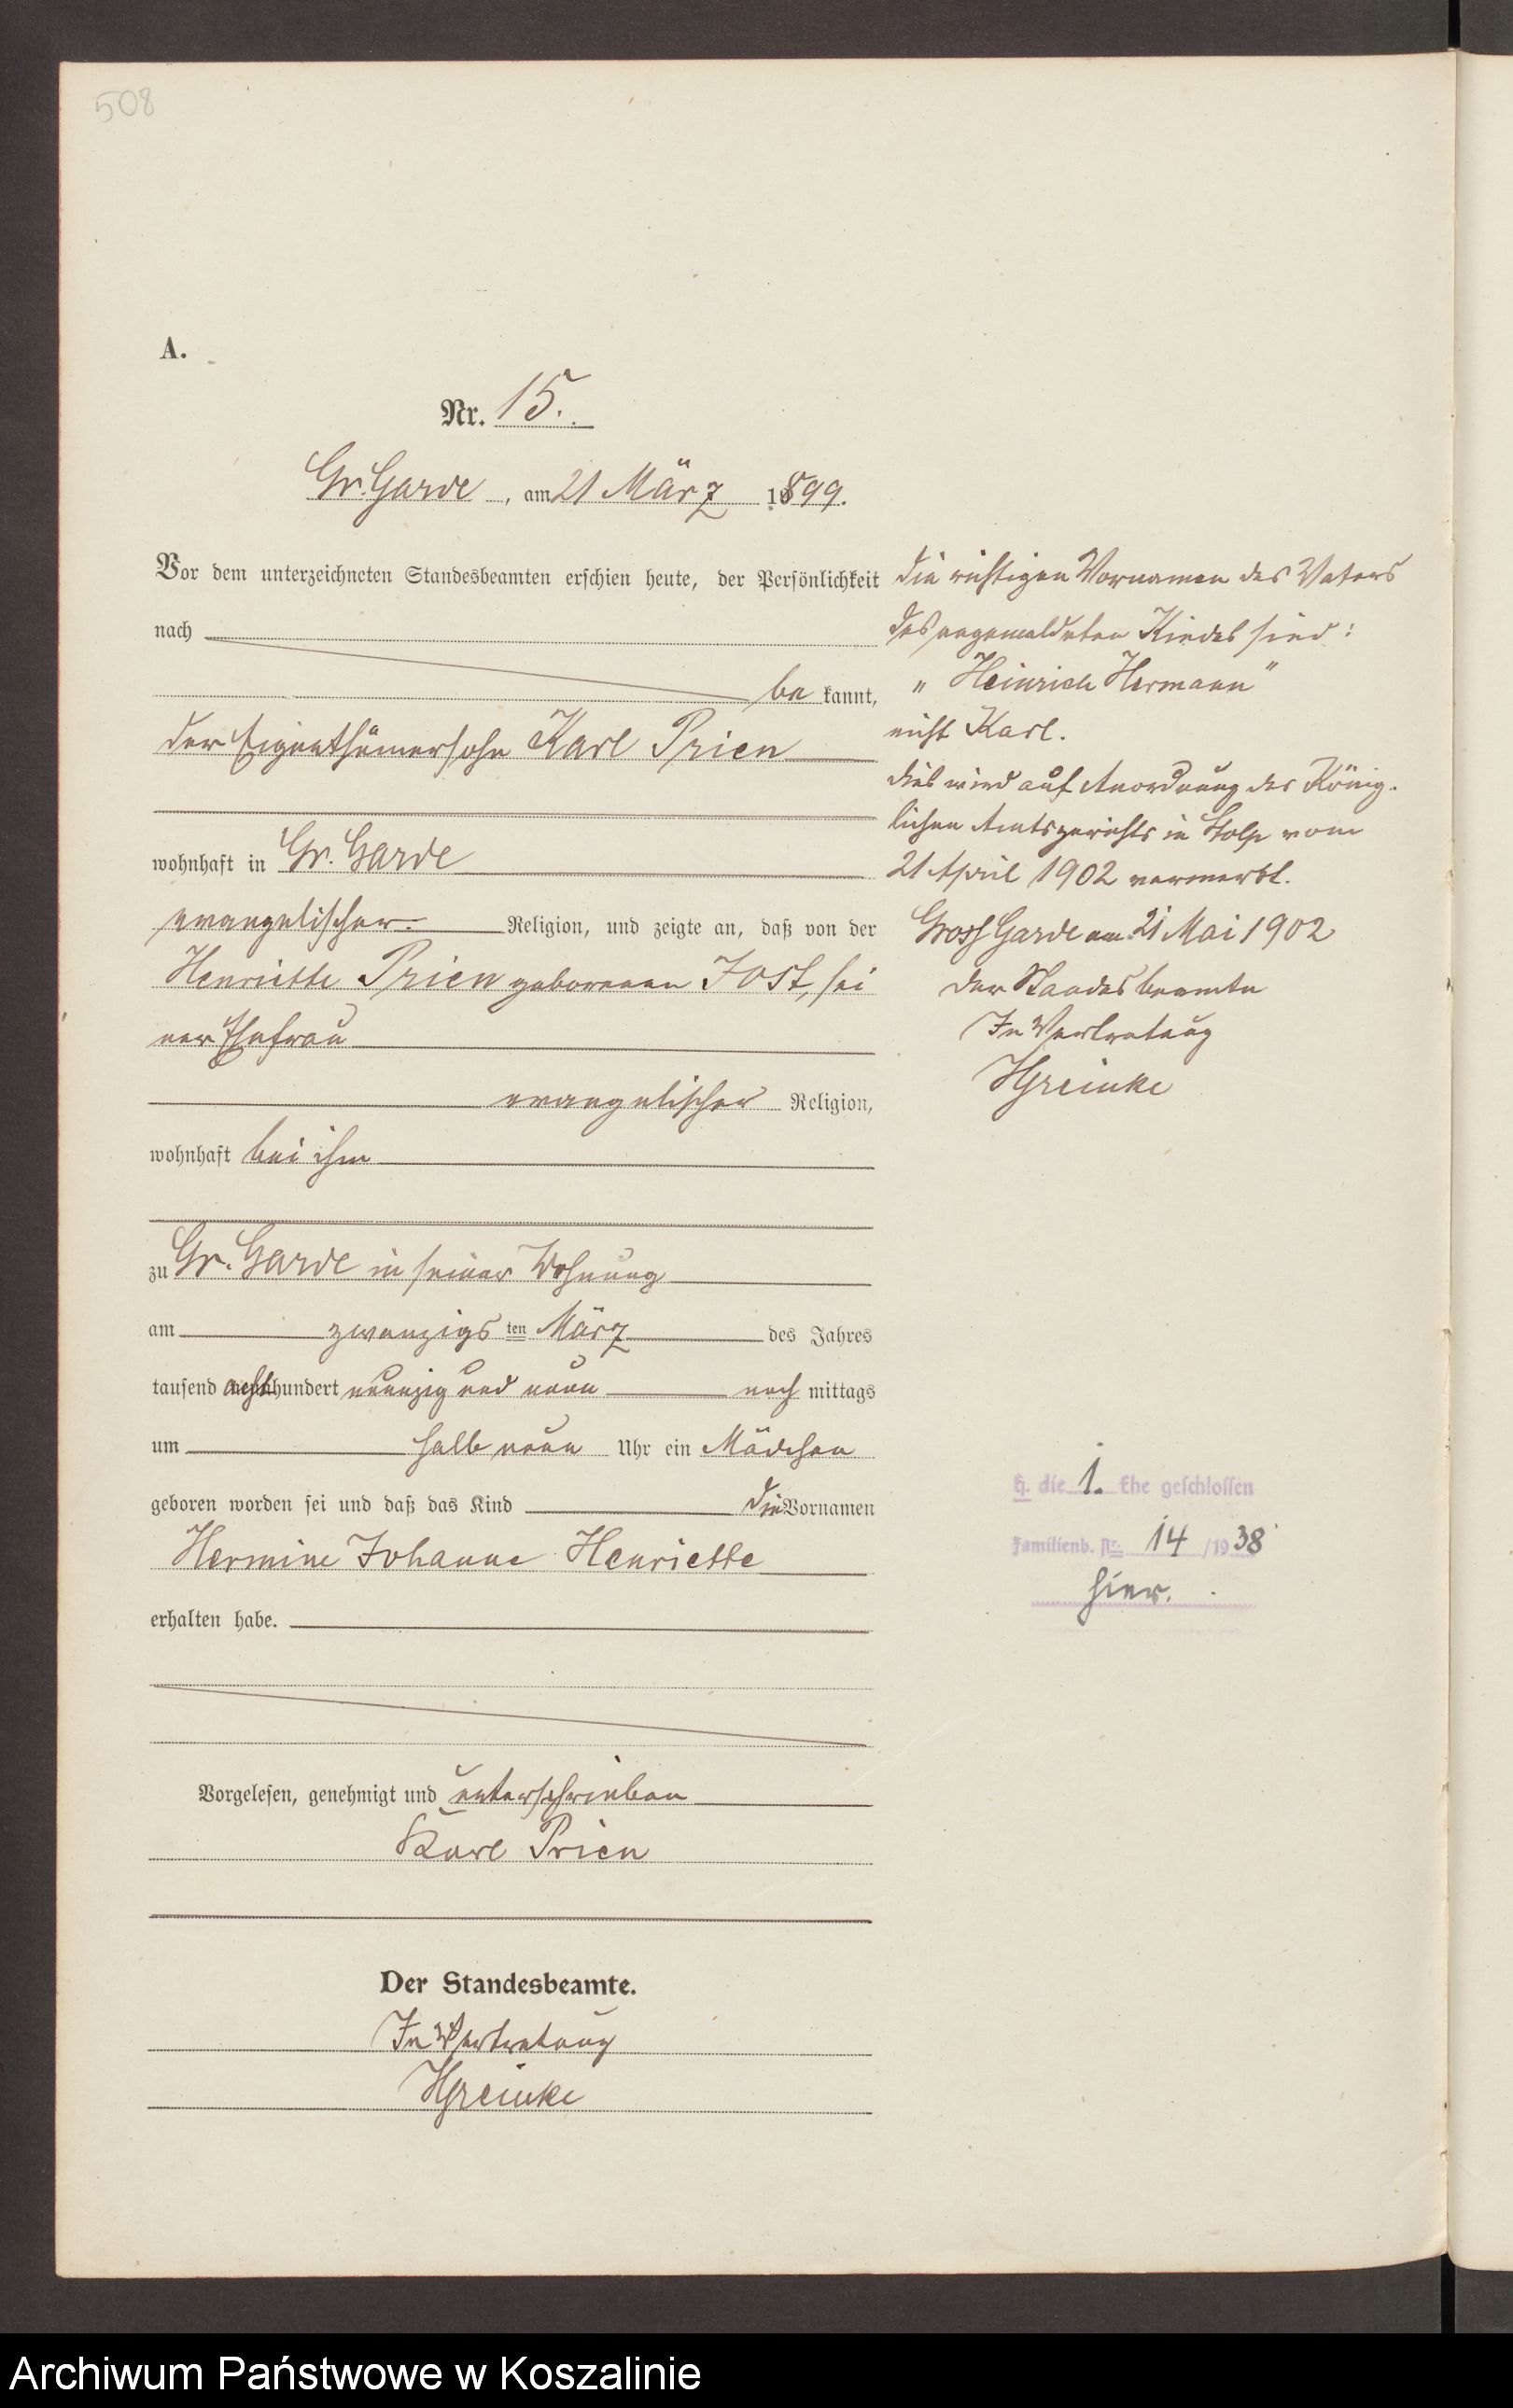 508
A.
Nr. 15.
Gr. Garde, am 21 März 1899.
Vor dem unterzeichneten Standesbeamten erschien heute, der Persönlichkeit
nach
be kannt,
der Eigenthümersohn Karl Prien
wohnhaft in Gr. Garde
evangelischer Religion, und zeigte an, daß von der
Henriette Prien geborenen Jost, sei
ner Ehefrau
evangelischer Religion,
wohnhaft bei ihm
zu Gr. Garde in seiner Wohnung
am zwanzigs ten März des Jahres
tausend acht hundert neunzig und neun nach mittags
um halb neun Uhr ein Mädchen
geboren worden sei und daß das Kind die Vornamen
Hermine Johanne Henriette
erhalten habe.
Vorgelesen, genehmigt und unterschrieben
Karl Prien
Der Standesbeamte.
In Vertretung
HGreinke
Die richtigen Vornamen des Vaters
des angemeldeten Kindes sind:
"Heinrich Hermann"
nicht Karl.
Dies wird auf Anordnung des König-
lichen Amtsgerichts in Stolp vom
21 April 1902 vermerkt.
Gross Garde am 21 Mai 1902
Der Standesbeamte
In Vertretung
HGreinke
H. die 1. Ehe geschlossen
Familienb. Nr. 14/1938
hier.
Archiwum Państwowe w Koszalinie